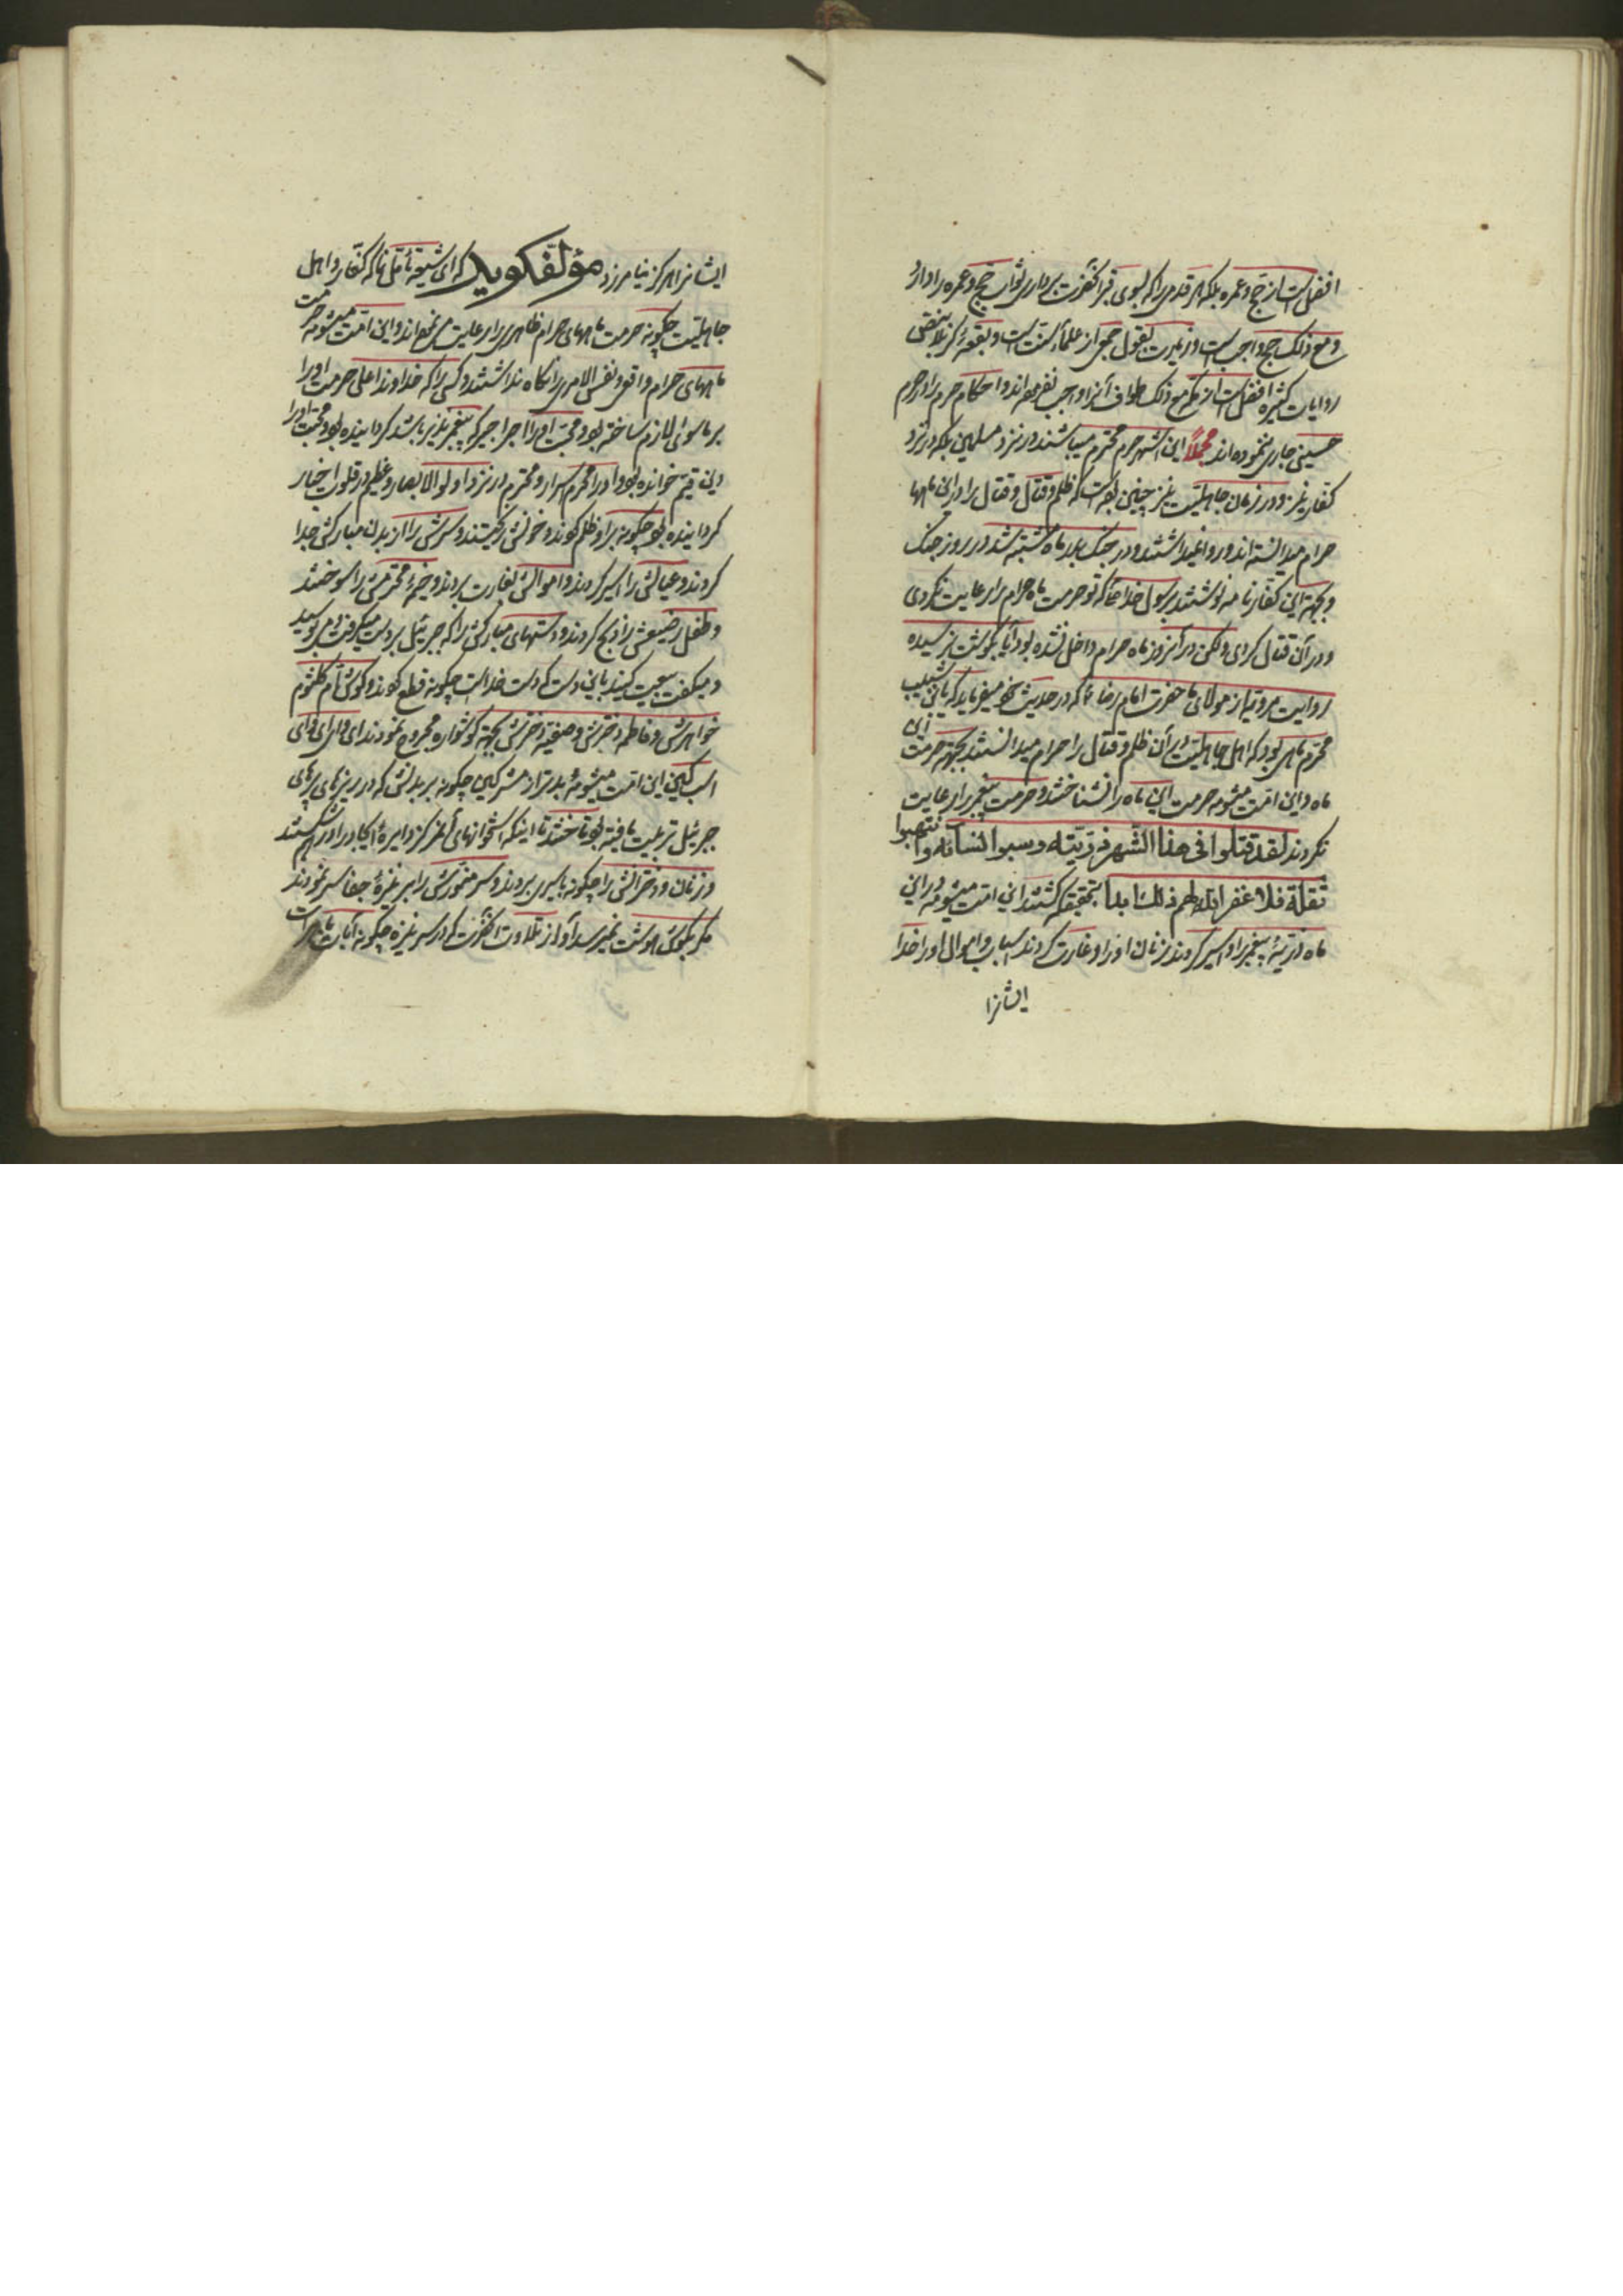 افضل است از حج و عمره بلکه هر قدمی را که بسوی قبر آنحضرت برداری ثواب حج و عمره را دارد
و مع ذلک حج واجب است و زیارت بقول جمعی از علماء سنت است و بقعهٔ کربلا بمقتضی
روایات کثیره افضل است از مکه مع ذلک طواف آنرا واجب نفرموده‌اند و احکام حرم را در حرم
حسینی جاری ننموده‌اند مجملاً این اشهر حرم محترم میباشند در نزد مسلمین بلکه در نزد
کفار نیز و در زمان جاهلیت نیز چنین بوده است که ظلم و قتل و قتال را در این ماهها
حرام میدانسته‌اند و روا نمیداشتند و در جنک بدر ماه مشتبه شد در روز جنک
و بجهة این کفار نامه نوشتند برسول خدا که تو حرمت ماه حرام را رعایت نکردی
و در آن قتال کردی ولکن در آنروز ماه حرام داخل نشده بود آیا بکوشت نرسیده
روایت مرویه از مولای ما حضرت امام رضا ع که در حدیث میفرماید که یابن شبیب
محرم ماهی بود که اهل جاهلیت در آن ظلم و قتال را حرام میدانستند بجهة حرمت این
ماه و این امت میشومه حرمت این ماه را نشناختند و حرمت پیغمبر را رعایت
نکردند لقد قتلوا فی هذا الشهر ذریته و سبوا نسائه و انتهبوا
ثقله فلا غفر الله لهم ذلک ابدا بتحقیق که کشتند این امت میشومه در این
ماه ذریهٔ پیغمبر را و اسیر کردند زنان او را و غارت کردند اسباب و اموال او را خدا
ایشانرا
ایشانرا هرکز نیامرزد مؤلف کوید که ای شیعه تأمل نما که کفار و اهل
جاهلیت چکونه حرمت ماههای حرام ظاهری را رعایت می‌نموده‌اند و این امت میشومه حرمت
ماههای حرام واقعی و نفس الامری را نکاه نداشتند و کسی را که خداوند اعلی حرمت او را
بر ماسوی لازم ساخته بود و محبت او را اجرا جیر که پیغمبر نذیر باشد کردانیده بود و محبت او را
دین قیم خوانده بود و او را محرم اسرار و محترم در نزد اولو الابصار و عظیم در قلوب اخیار
کردانیده بود چکونه بر او ظلم کردند و خونش ریختند و سرش را از بدن مبارکش جدا
کردند و عیالش را اسیر کردند و اموالش بغارت بردند و خیمهٔ محترمش را سوختند
و طفل رضیعش را ذبح کردند و دستهای مبارکش را که جبرئیل بر دست میکرفت و می‌بوسید
و میکفت بیعت کنید باین دست که دست خداست چکونه قطع کردند و کوش ام کلثوم
خواهرش و فاطمه دخترش و صفیه دخترش بجهة کوشواره مجروح نمودند ای وای ای وای
اسب کین این امت میشومهٔ بدتر از مشرکین چکونه بر بدنش که در ریزهای پرهای
جبرئیل تربیت یافته بود تاختند تا اینکه استخوانهای آن مرکز دایرهٔ ایجاد را در هم شکستند
و زنان و دخترانش را چکونه باسیری بردند و سر منورش را بر نیزهٔ جفا سیر نمودند
مکر بکوش هوشت نمیرسد آواز تلاوت آنحضرت که در سر نیزه چکونه آیات